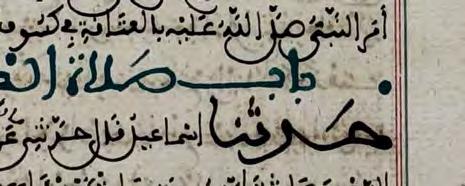 أمر النبي صلى الله عليه بالعتاقة في كسوف
باب صلاة
حدثنا اسماعيل قال حدثني